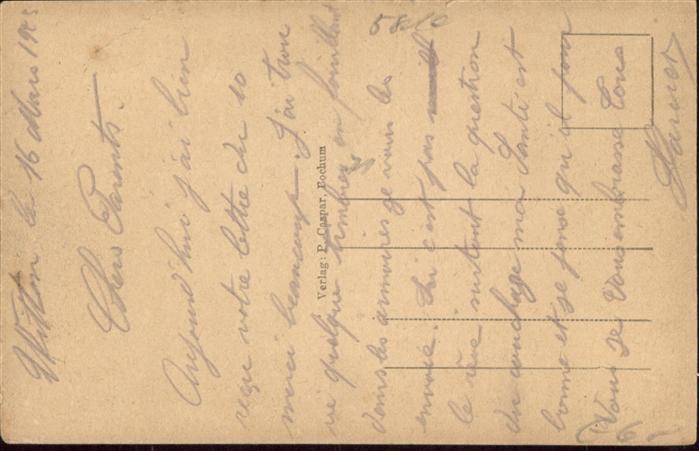 Witten le 16 Mars 192
Chers Parents.
Aujourd'hui j'ai bien
reçu votre lettre du 10
merci beaucoup. J'ai trou
vé quelque timbres en fouillant
dans les armoires je vous les
envoie. Ici c'est pas
le rêve surtout la question
du couchage ma Santé est
bonne et je pense qu'il pour
Vous Je Vous embrasse tous
Verlag: P. Caspar, Bochum